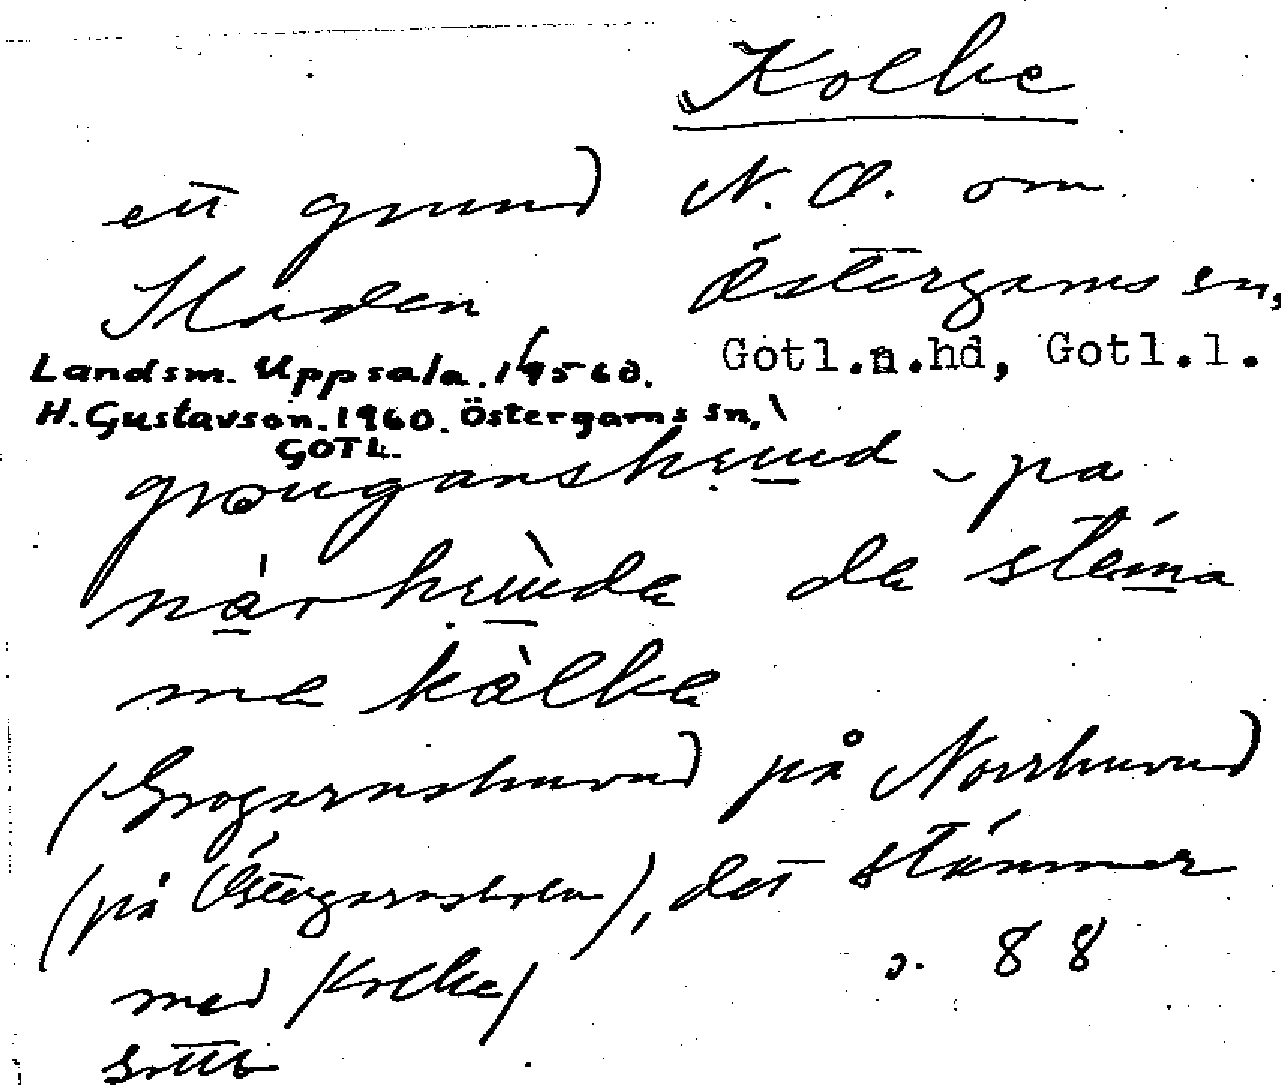 Kolke
ett grund N.Ö. om
Sladen Östergarns sn,
Gotl.n.hd, Gotl.l.
Landsm. Uppsala. 1/9 5 60.
H. Gustavson. 1960. Östergarns sn,
GOTL.
på
da stäma
ma kålka
(Grogarnshuvud på Norrhuvud
(på Östergarnsholm), det stämmer
med Kolke)
s. 88